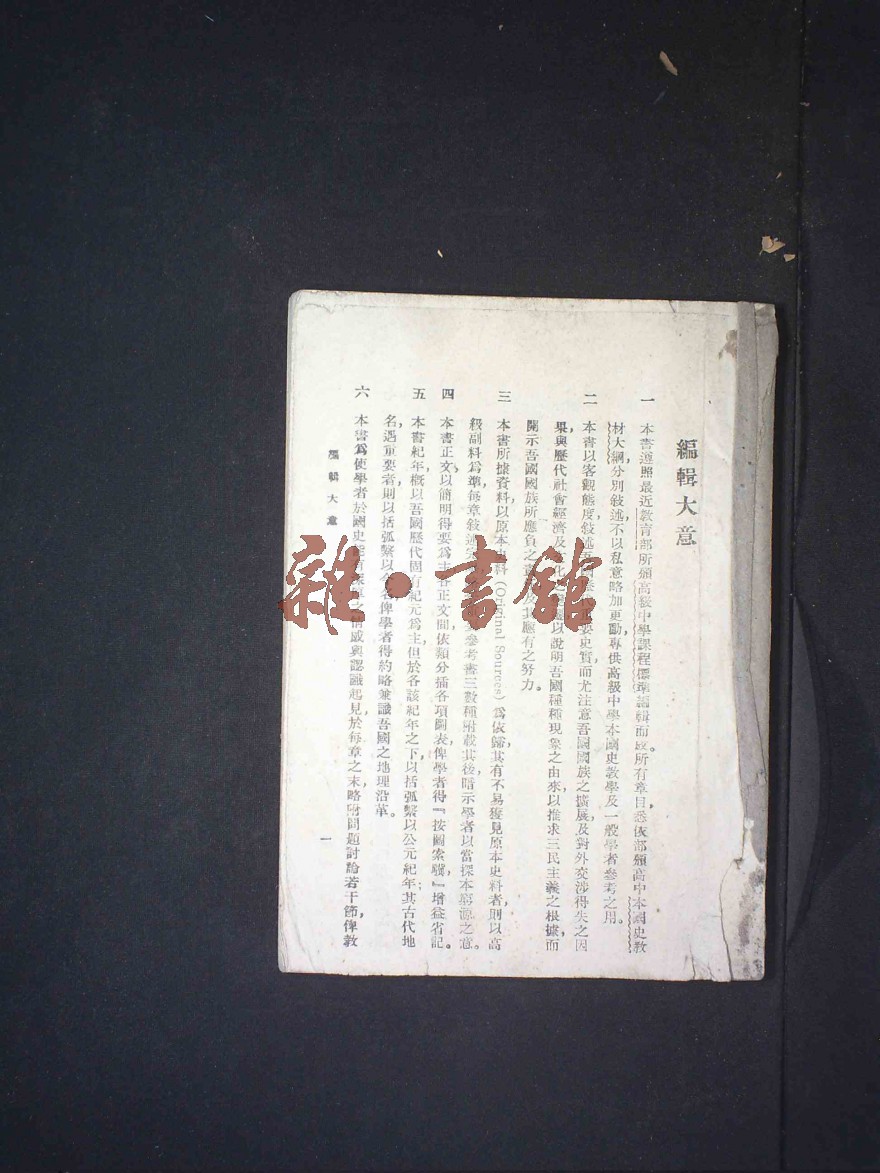 編輯大意
一 本書遵照最近教育部所頒高級中學課程標準編輯而成。所有章目，悉依部頒高中本國史教
材大綱分別敍述，不以私意略加更動，專供高級中學本國史教學及一般學者參考之用。
二 本書以客觀態度敍述吾國 要史實，而尤注意吾國國族之擴展，及對外交涉得失之因
果，與歷代社會經濟及 以說明吾國種種現象之由來，以推求三民主義之根據，而
開示吾國國族所應負之 及其應有之努力。
三 本書所據資料，以原本史料 (Original Sources) 爲依歸，其有不易獲見原本史料者，則以高
級副料爲準，每章敍述 參考書三數種附載其後，暗示學者以當探本窮源之意。
四 本書正文，以簡明得要爲主，各正文間，依類分插各項圖表，俾學者得『按圖索驥』，增益省記。
五 本書紀年，概以吾國歷代固有紀元爲主，但於各該紀年之下，以括弧繫以公元紀年；其古代地
名，遇重要者，則以括弧繫以今名，俾學者得約略兼識吾國之地理沿革。
六 本書爲使學者於國史 有深 之情感與認識起見，於每章之末，略附問題討論若干節，俾教
編輯大意
一
雜·書館